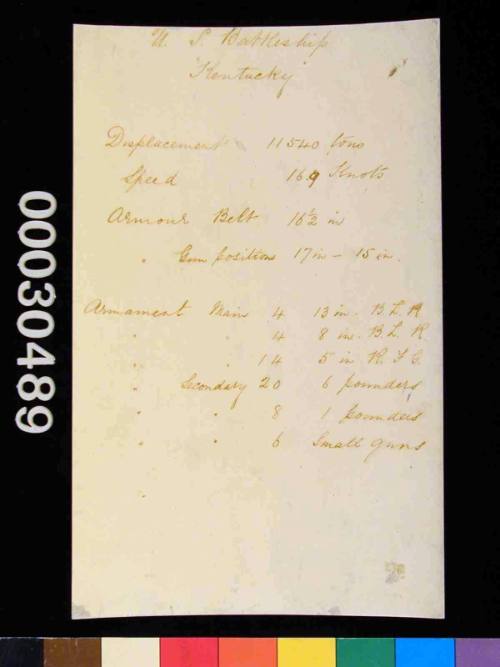 U. S. Battleship
"Kentucky"
Displacement 11540 tons
Speed 16.9 Knots
Armour Belt 16 1/2 in
" Gun positions 17 in - 15 in.
Armament Main 4 13 in. B. L. R
" " 4 8 in. B. L. R
" " 14 5 in R. F. G.
" Secondary 20 6 pounders
" " 8 1 pounders
" " 6 Small guns
00030489